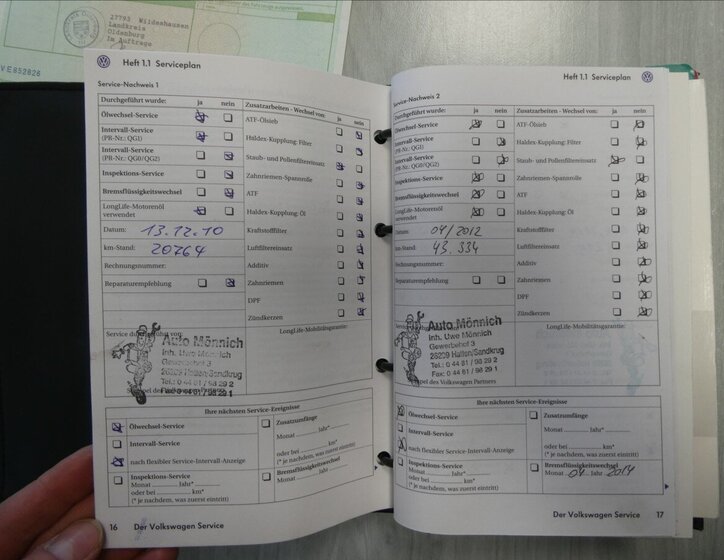 27793 Wildeshausen
Landkreis
Oldenburg
Im Auftrage
VE852828
Heft 1.1 Serviceplan
Service-Nachweis 1
Durchgeführt wurde: ja nein
Ölwechsel-Service
Intervall-Service
(PR-Nr.: QG1)
Intervall-Service
(PR-Nr.: QG0/QG2)
Inspektions-Service
Bremsflüssigkeitswechsel
LongLife-Motorenöl
verwendet
Datum: 13.12.10
km-Stand: 20764
Rechnungsnummer:
Reparaturempfehlung
Zusatzarbeiten - Wechsel von: ja nein
ATF-Ölsieb
Haldex-Kupplung: Filter
Staub- und Pollenfiltereinsatz
Zahnriemen-Spannrolle
ATF
Haldex-Kupplung: Öl
Kraftstofffilter
Luftfiltereinsatz
Additiv
Zahnriemen
DPF
Zündkerzen
Service durchgeführt von:
LongLife-Mobilitätsgarantie:
Auto Mönnich
Inh. Uwe Mönnich
Gewerbehof 3
26209 Hatten/Sandkrug
Tel.: 0 44 81 / 98 29 2
Fax: 0 44 81 / 98 29 1
Ihre nächsten Service-Ereignisse
Ölwechsel-Service
Intervall-Service
nach flexibler Service-Intervall-Anzeige
Inspektions-Service
Monat Jahr*
oder bei km*
(* je nachdem, was zuerst eintritt)
Zusatzumfänge
Monat Jahr*
oder bei km*
(* je nachdem, was zuerst eintritt)
Bremsflüssigkeitswechsel
Monat Jahr
16 Der Volkswagen Service
Heft 1.1 Serviceplan
Service-Nachweis 2
Durchgeführt wurde: ja nein
Ölwechsel-Service
Intervall-Service
(PR-Nr.: QG1)
Intervall-Service
(PR-Nr.: QG0/QG2)
Inspektions-Service
Bremsflüssigkeitswechsel
LongLife-Motorenöl
verwendet
Datum: 04/2012
km-Stand: 43.334
Rechnungsnummer:
Reparaturempfehlung
Zusatzarbeiten - Wechsel von: ja nein
ATF-Ölsieb
Haldex-Kupplung: Filter
Staub- und Pollenfiltereinsatz
Zahnriemen-Spannrolle
ATF
Haldex-Kupplung: Öl
Kraftstofffilter
Luftfiltereinsatz
Additiv
Zahnriemen
DPF
Zündkerzen
LongLife-Mobilitätsgarantie:
Auto Mönnich
Inh. Uwe Mönnich
Gewerbehof 3
26209 Hatten/Sandkrug
Tel.: 0 44 81 / 98 29 2
Fax: 0 44 81 / 98 29 1
Stempel des Volkswagen Partners
Ihre nächsten Service-Ereignisse
Ölwechsel-Service
Intervall-Service
nach flexibler Service-Intervall-Anzeige
Inspektions-Service
Monat Jahr*
oder bei km*
(* je nachdem, was zuerst eintritt)
Zusatzumfänge
Monat Jahr*
oder bei km*
(* je nachdem, was zuerst eintritt)
Bremsflüssigkeitswechsel
Monat 04 Jahr 2014
Der Volkswagen Service 17